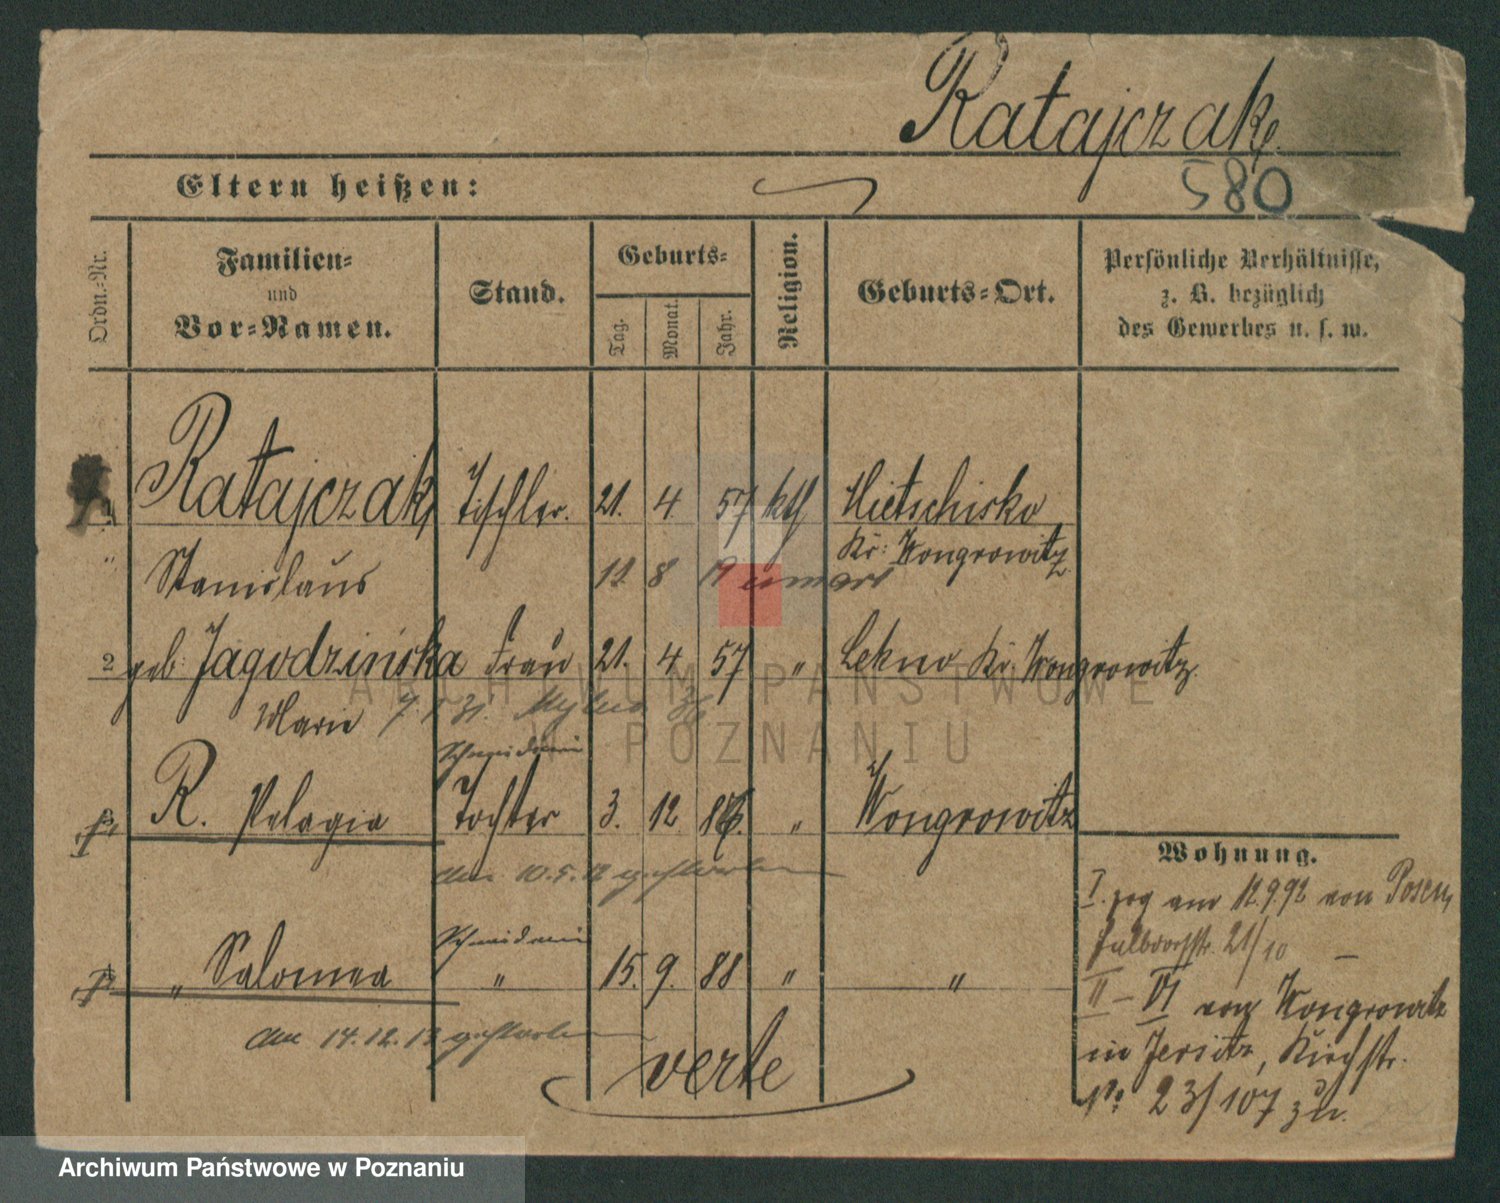 Ratajczak.
Eltern heißen:
580
Ordn.-Nr.
Familien-
und
Vor-Namen.
Stand.
Geburts-
Tag.
Monat.
Jahr.
Religion.
Geburts-Ort.
Persönliche Verhältnisse,
z. B. bezüglich
des Gewerbes u. s. w.
1 Ratajczak Tischler. 21. 4 57 kth Mietschisko
Kr: Wongrowitz
" Stanislaus 12 8 19
2 geb. Jagodzińska Frau 21. 4 57 " Lekno Kr. Wongrowitz.
Marie 7. 1 31.
Schneiderin
R. Pelagia Tochter 3. 12 86. " Wongrowitz
am 10.5.12 gestorben
Schneiderin
" Salomea " 15. 9. 88 " "
am 14.12.13 gestorben
verte
Wohnung.
I. zog am 12.9.92 von Posen,
Halbdorfstr. 21/10 —
II – VI von Wongrowitz
in Jersitz, Kirchstr.
No 23/107 zu.
ARCHIWUM PAŃSTWOWE
W POZNANIU
Archiwum Państwowe w Poznaniu